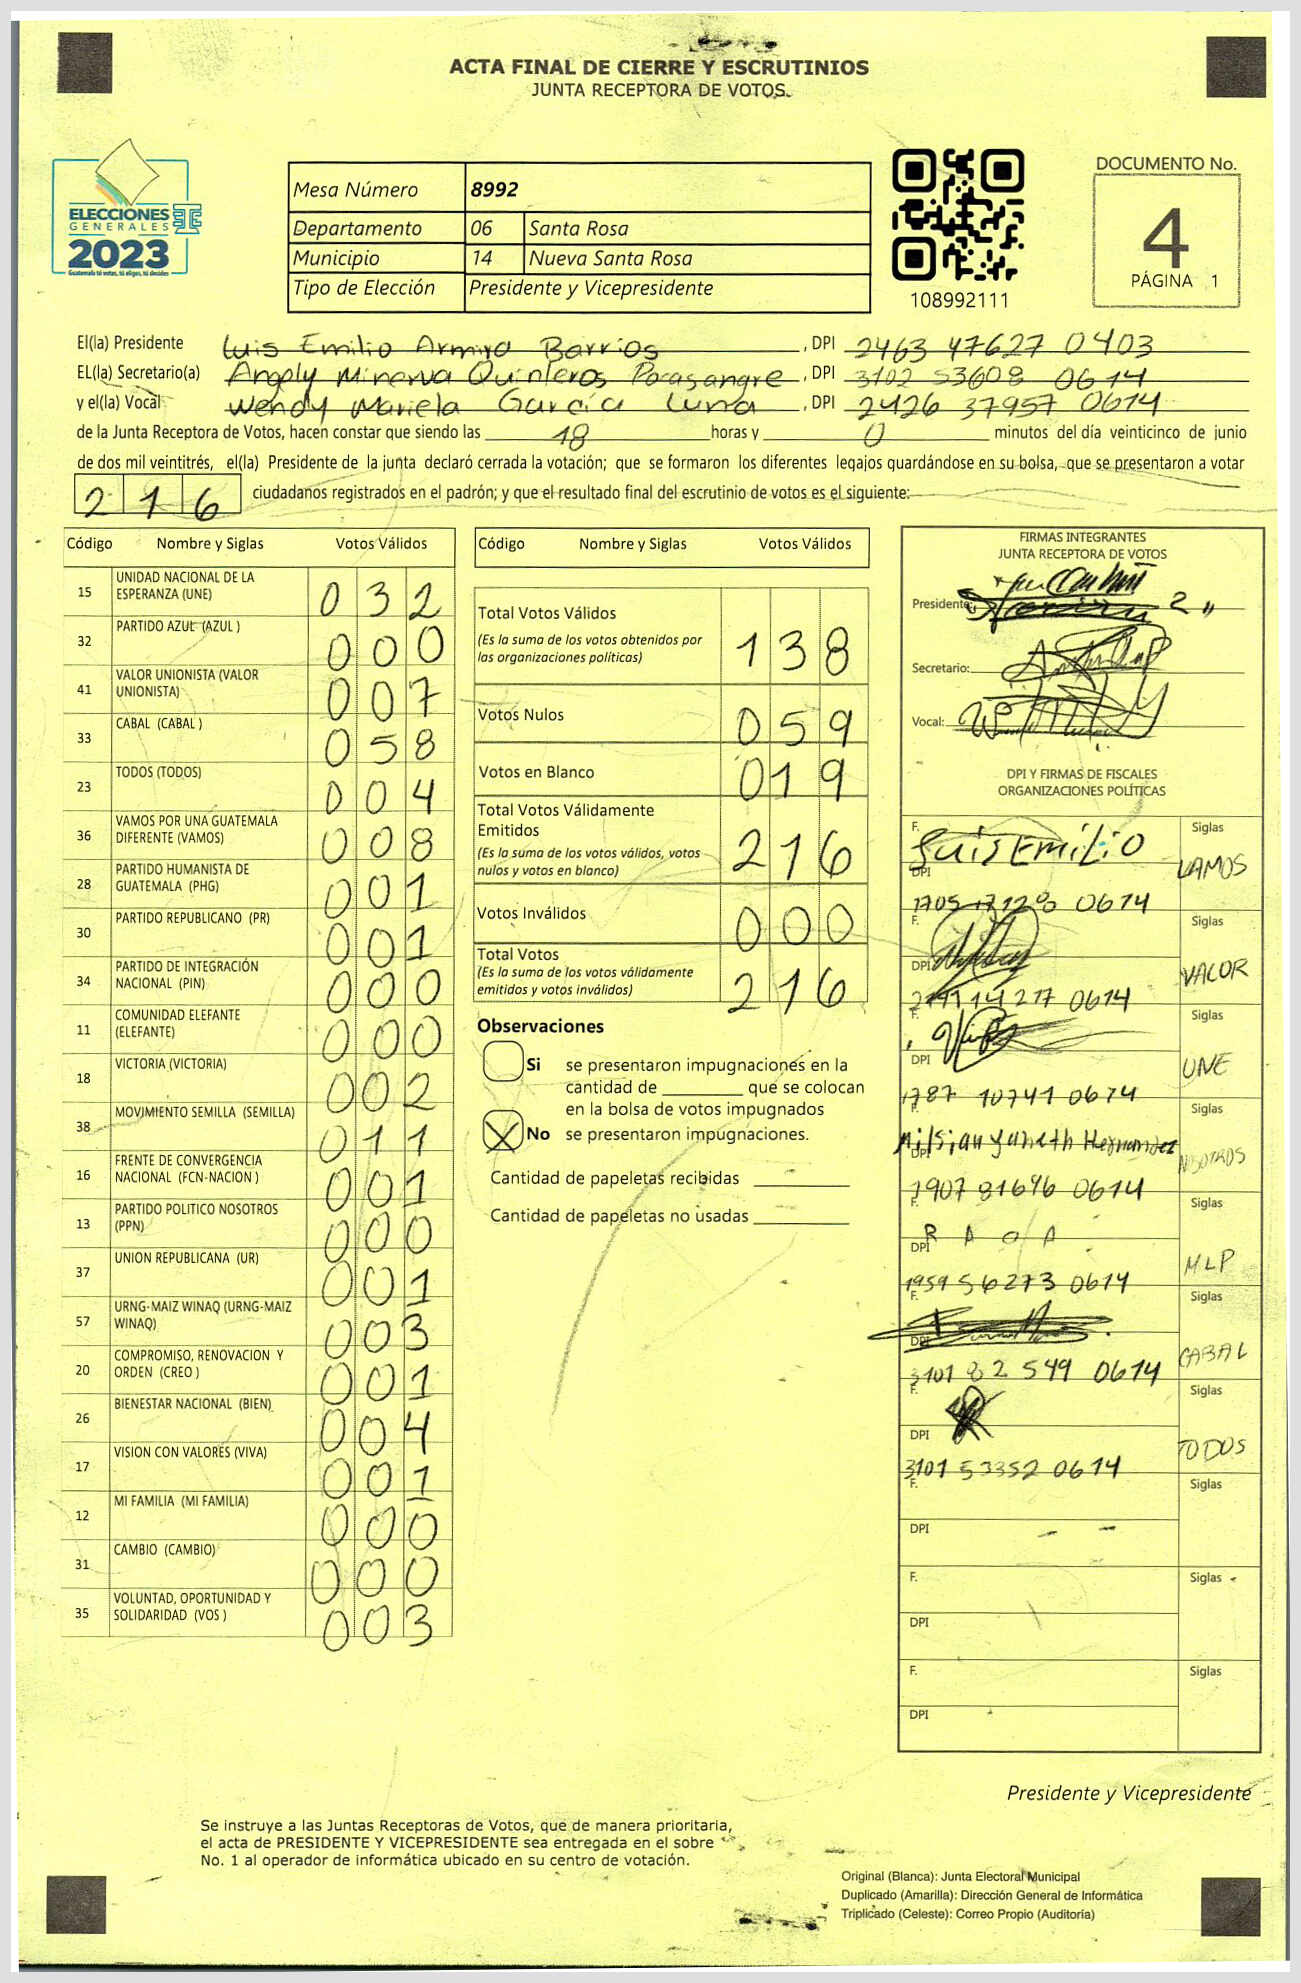 ACTA FINAL DE CIERRE Y ESCRUTINIOS
JUNTA RECEPTORA DE VOTOS.
ELECCIONES
GENERALES
2023
Guatemala tú votas, tú eliges, tú decides
Mesa Número 8992
Departamento 06 Santa Rosa
Municipio 14 Nueva Santa Rosa
Tipo de Elección Presidente y Vicepresidente
108992111
DOCUMENTO No.
4
PÁGINA 1
El(la) Presidente Luis Emilio Barrios, DPI 2463 47627 0403
EL(la) Secretario(a) Angely Minerva Quinteros Pocasangre, DPI 3102 53608 0614
y el(la) Vocal Wendy Mariela García Luna, DPI 2426 37957 0614
de la Junta Receptora de Votos, hacen constar que siendo las 18 horas y 0 minutos del día veinticinco de junio
de dos mil veintitrés, el(la) Presidente de la junta declaró cerrada la votación; que se formaron los diferentes legajos guardándose en su bolsa, que se presentaron a votar
216 ciudadanos registrados en el padrón; y que el resultado final del escrutinio de votos es el siguiente:
Código Nombre y Siglas Votos Válidos
15 UNIDAD NACIONAL DE LA ESPERANZA (UNE) 032
32 PARTIDO AZUL (AZUL ) 000
41 VALOR UNIONISTA (VALOR UNIONISTA) 007
33 CABAL (CABAL ) 058
23 TODOS (TODOS) 004
36 VAMOS POR UNA GUATEMALA DIFERENTE (VAMOS) 008
28 PARTIDO HUMANISTA DE GUATEMALA (PHG) 001
30 PARTIDO REPUBLICANO (PR) 001
34 PARTIDO DE INTEGRACIÓN NACIONAL (PIN) 000
11 COMUNIDAD ELEFANTE (ELEFANTE) 000
18 VICTORIA (VICTORIA) 002
38 MOVIMIENTO SEMILLA (SEMILLA) 011
16 FRENTE DE CONVERGENCIA NACIONAL (FCN-NACION ) 001
13 PARTIDO POLITICO NOSOTROS (PPN) 000
37 UNION REPUBLICANA (UR) 001
57 URNG-MAIZ WINAQ (URNG-MAIZ WINAQ) 003
20 COMPROMISO, RENOVACION Y ORDEN (CREO ) 001
26 BIENESTAR NACIONAL (BIEN) 004
17 VISION CON VALORES (VIVA) 001
12 MI FAMILIA (MI FAMILIA) 000
31 CAMBIO (CAMBIO) 000
35 VOLUNTAD, OPORTUNIDAD Y SOLIDARIDAD (VOS ) 003
Código Nombre y Siglas Votos Válidos
Total Votos Válidos 138
(Es la suma de los votos obtenidos por
las organizaciones políticas)
Votos Nulos 059
Votos en Blanco 019
Total Votos Válidamente
Emitidos 216
(Es la suma de los votos válidos, votos
nulos y votos en blanco)
Votos Inválidos 000
Total Votos 216
(Es la suma de los votos válidamente
emitidos y votos inválidos)
Observaciones
Si se presentaron impugnaciones en la
cantidad de ________ que se colocan
en la bolsa de votos impugnados
X No se presentaron impugnaciones.
Cantidad de papeletas recibidas
Cantidad de papeletas no usadas
FIRMAS INTEGRANTES
JUNTA RECEPTORA DE VOTOS
Presidente:
Secretario:
Vocal:
DPI Y FIRMAS DE FISCALES
ORGANIZACIONES POLÍTICAS
F. Luis EMiLiO Siglas VAMOS
DPI 0614
F. Siglas VALOR
DPI 14217 0614
F. Siglas UNE
DPI 1787 10741 0614
F. Yaneth Hernandez Siglas NOSOTROS
DPI 1907 81696 0614
F. Siglas MLP
DPI 1959 56273 0614
F. Siglas CABAL
DPI 3101 82 549 0614
F. Siglas TODOS
DPI 3101 53352 0614
F. Siglas
DPI
F. Siglas
DPI
F. Siglas
DPI
Presidente y Vicepresidente
Se instruye a las Juntas Receptoras de Votos, que de manera prioritaria,
el acta de PRESIDENTE Y VICEPRESIDENTE sea entregada en el sobre
No. 1 al operador de informática ubicado en su centro de votación.
Original (Blanca): Junta Electoral Municipal
Duplicado (Amarilla): Dirección General de Informática
Triplicado (Celeste): Correo Propio (Auditoría)